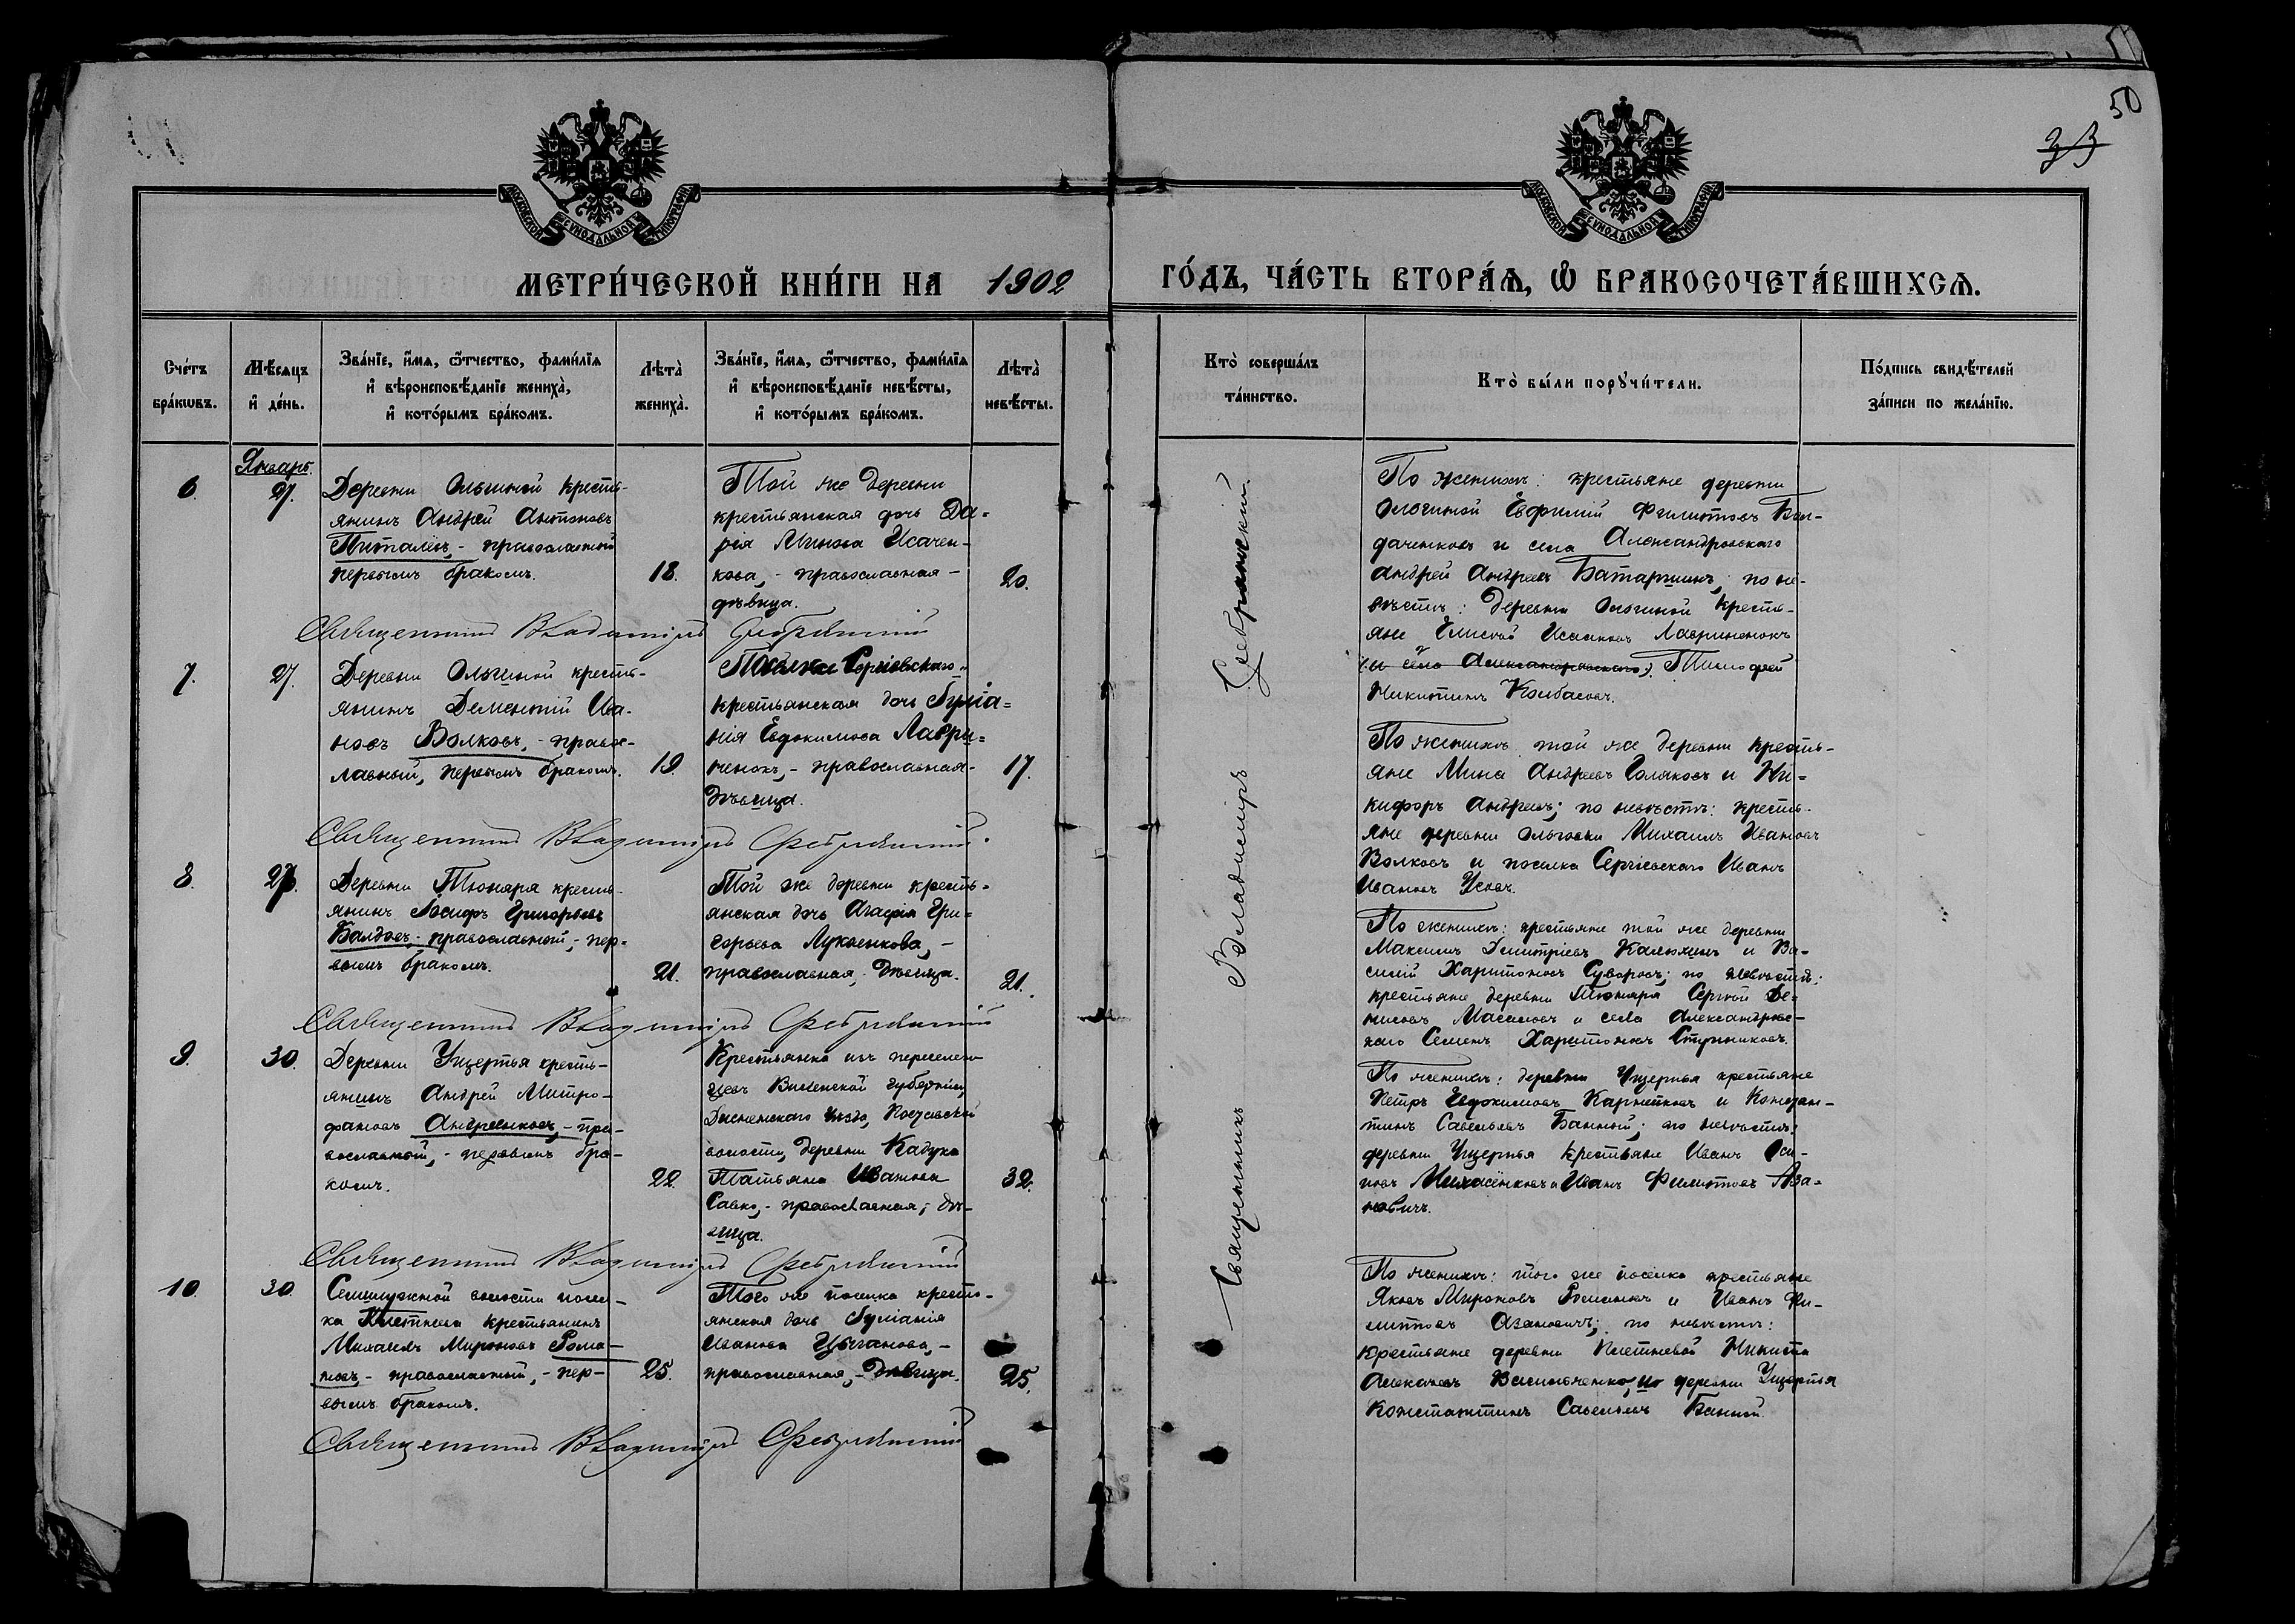 50
33
МОСКОВСКОЙ СѴНОДАЛЬНОЙ ТИПОГРАФІИ
МОСКОВСКОЙ СѴНОДАЛЬНОЙ ТИПОГРАФІИ
МЕТРИ́ЧЕСКОЙ КНИ́ГИ НА 1902 ГО́ДЪ, ЧА́СТЬ ВТОРА́Ѧ, Ѽ БРАКОСОЧЕТА́ВШИХСѦ.
Сче́тъ
бра́кѡвъ.
Мѣ́сѧцъ
и҆ де́нь.
Зва́нїе, и҆́мѧ, ѻ҆́тчество, фами́лїѧ
и҆ вѣроисповѣ́данїе жениха̀,
и҆ кото́рымъ бра́комъ.
Лѣта̀
жениха̀.
Зва́нїе, и҆́мѧ, ѻ҆́тчество, фами́лїѧ
и҆ вѣроисповѣ́данїе невѣ́сты,
и҆ кото́рымъ бра́комъ.
Лѣта̀
невѣ́сты.
Кто̀ соверша́лъ
та́инство.
Кто̀ бы́ли порꙋчи́тели.
По́дпись свидѣ́телей
за́писи по жела́нїю.
Январь.
6.
27.
Деревни Ольгиной кресть-
янинъ Андрей Антоновъ
- православный
первымъ бракомъ.
18.
Той же деревни
крестьянская дочь Да-
рія Минова Исачен-
кова, - православная -
дѣвица.
20.
По женихѣ: крестьяне деревни
Ольгиной Евфимій Филиповъ
и села Александровскаго
Андрей Андреевъ по не-
вѣстѣ: деревни Ольгиной кресть-
яне Елисей Исааковъ Лавриненокъ
(и села Александровскаго) Тимофей
Никитинъ Колбасовъ.
Священникъ Владиміръ Серебрянскій
7.
27.
Деревни Ольгиной кресть-
янинъ Дементій Ива-
новъ Волковъ, - правос-
лавный, первымъ бракомъ.
19.
Поселка Сергіевскаго
крестьянская дочь Гулiа-
нія Евдокимова Лаври-
ненокъ, - православная -
дѣвица.
17.
По женихѣ той же деревни кресть-
яне Мина Андреевъ Голяковъ и Ни-
кифоръ Андреевъ; по невѣстѣ: кресть-
яне деревни Ольговки Михаилъ Ивановъ
Волковъ и поселка Сергіевскаго Иванъ
Ивановъ Усовъ.
Священникъ Владиміръ Серебрянскій.
8.
27.
Деревни Тюняря кресть-
янинъ Іосифъ Григорьевъ
Балдовъ - православный, - пер-
вымъ бракомъ.
21.
Той же деревни кресть-
янская дочь Агафія Гри-
горьева Лукьенкова, -
православная, - дѣвица.
21.
По женихѣ: крестьяне той же деревни
Максимъ Димитріевъ Калюжинъ и Ва-
силій Харитоновъ Суворовъ; по невѣстѣ:
крестьяне деревни Тюняря Сергѣй Де-
нисовъ и села Александровс-
каго Семенъ Харитоновъ Стрѣльниковъ.
Священникъ Владиміръ Серебрянскій
9.
30.
Деревни Ущерпья кресть-
янинъ Андрей Митро-
фановъ Андреенковъ, - пра-
вославный, - первымъ бра-
комъ.
22.
Крестьянка изъ переселен-
цевъ Виленской губерніи,
Дисненскаго уѣзда,
волости, деревни Кадука
Татьяна Иванова
Савко, - православная, дѣ-
вица.
32.
По женихѣ: деревни Ущерпья крестьяне
Петръ Евдокимовъ и Констан-
тинъ Савельевъ Банный; по невѣстѣ:
деревни Ущерпья крестьяне Иванъ Оси-
повъ Михасёнковъ и Иванъ Филиповъ Аза-
новичъ.
Священникъ Владиміръ Серебрянскій
10.
30.
Семилужной волости посел-
ка крестьянинъ
Михаилъ Мироновъ Рома-
новъ, - православный, - пер-
вымъ бракомъ.
25.
Того же поселка кресть-
янская дочь Гуліанія
Иванова Цыганова, -
православная, - дѣвица.
25.
По женихѣ: того же поселка крестьяне
Яковъ Мироновъ Романовъ и Иванъ Фи-
липовъ Азановичъ; по невѣстѣ:
крестьяне деревни Плетневой Никита
Василь­ченко, и деревни Ущерпья
Константинъ Савельевъ Банный.
Священникъ Владиміръ Серебрянскій
Священникъ Владиміръ Серебрянскій.